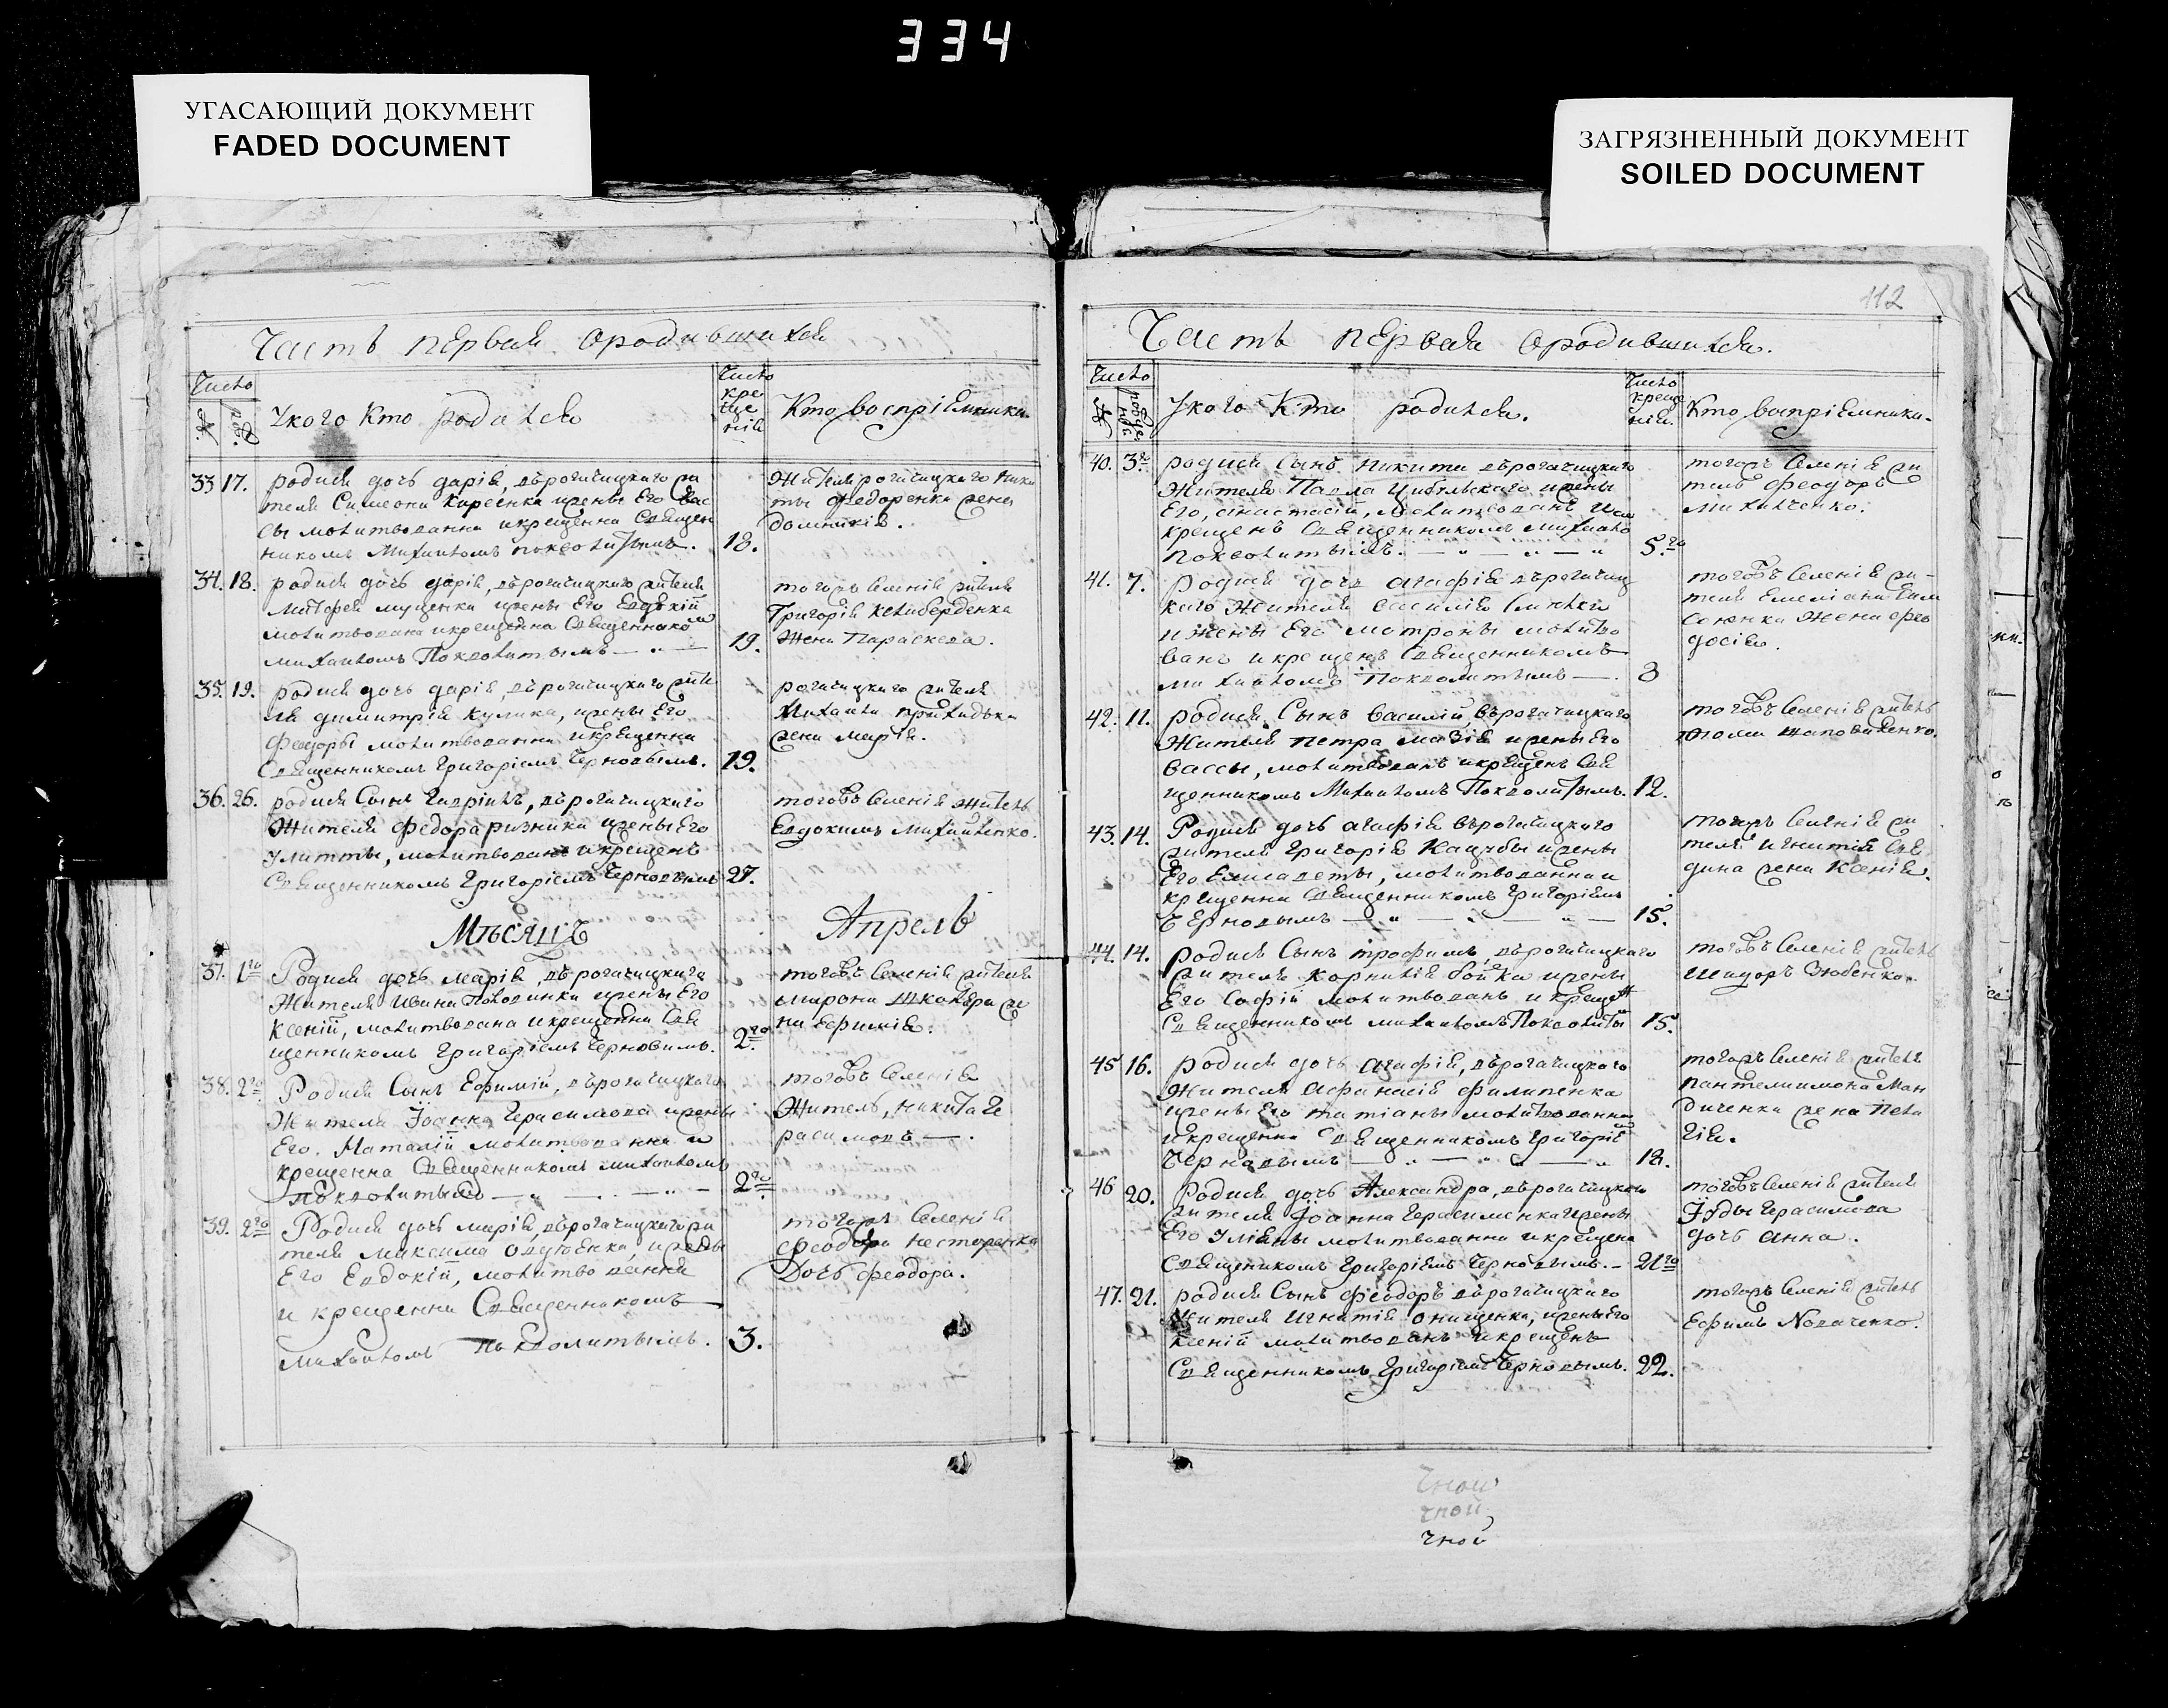 334
УГАСАЮЩИЙ ДОКУМЕНТ
FADED DOCUMENT
ЗАГРЯЗНЕННЫЙ ДОКУМЕНТ
SOILED DOCUMENT
Часть первая ородившихся
Число
Укого Кто родился
Число
кре
ще
нія
Кто воспріемники
33 17. родися дочь дарія, въ рогачицкаго жи
теля Симеона Киреенка и жены Его Вас
сы молитвованна и крещенна Священ
никомъ Михаиломъ поксолитымъ. 18.
Жителя рогачицкаго Ники
ты Федоренка жена
домникія.
34. 18. родися дочь дарія, въ рогачицкаго жителя
Матфея муценка и жены Его Евдокіи
молитвована и крещенна Священнико
м
михаиломъ Поксолитымъ 19.
тогожъ селенія жителя
Григорія келиберденка
Жена Параскева.
35. 19. родися дочь дарія, въ рогачицкаго жите
ля димитрія кулика, и жены Его
феодоры молитвованна и крещенна
Священникомъ григоріемъ Черновымъ. 19.
рогачицкаго жителя
Михаила прихидька
жена марія.
36. 26. родися Сынъ гавріилъ, въ рогачицкаго
Жителя федора ризника и жены Его
улитты, молитвованъ и крещенъ
Священникомъ григоріемъ Черновымъ 27.
тогожъ селенія житель
Евдокимъ михайленко.
Мѣсяцъ Апрель
37. 1го Родися дочь марія, въ рогачицкаго
Жителя ивана Половинки и жены Его
Ксеніи, молитвована и крещенна Свя
щенникомъ григоріемъ Черновимъ. 2го
тогожъ селенія жителя
мирона шкляра же
на ефимія.
38. 2го Родися Сынъ Ефимій, въ рогачицкаго
Жителя Іоанна Герасимова и жены
Его. Наталіи молитвованна и
крещенна Священникомъ михаиломъ
поксолитымъ 2го
тогожъ селенія
Житель, никита Ге
расимовъ
39. 2го Родися дочь марія, въ рогачицкаго жи
теля максима и жены
Его Евдокіи, молитвованна
и крещенна Священникомъ
михаиломъ поксолитымъ. 3.
тогожъ селенія
феодора нестеренка
Дочь феодора.
112
Часть первая ородившихся.
Число
рожде
нія
Укого Кто родился.
Число
креще
нія.
Кто воспріемники.
40. 3го родися Сынъ никита въ рогачицкаго
Жителя Павла Цибульскаго и жены
Его, анастасіи, молитвованъ и
крещенъ Священникомъ михаило
поксолитымъ. 5го
тогожъ селенія жи
тель феодоръ
михличенко.
41. 7. Родися дочь агафія въ рогачиц
каго Жителя василія
и жены Его мотроны молитво
ванъ и крещенъ Священникомъ
михаиломъ Поксолитымъ 8
тогожъ селенія жи-
теля Емеліана
жена фео
досія.
42. 11. родися Сынъ василій, въ рогачицкаго
Жителя петра мазія и жены Его
вассы, молитвованъ и крещенъ Свя
щенникомъ Михаиломъ Поксолитымъ. 12.
тогожъ селенія житель
шаповаленко.
43. 14. Родися дочь агафія въ рогачицкаго
жителя григорія Кацубы и жены
Его Елисаветы, молитвованна и
крещенна Священникомъ григоріемъ
Черновымъ 15.
тогожъ селенія жи
теля игнатія
дина жена ксенія.
44. 14. родися Сынъ трофимъ, въ рогачицкаго
жителя корнилія бойка и жены
Его Софіи молитвованъ и креще
Священникомъ михаиломъ Поксолиты 15.
тогожъ селенія житель
исидоръ Зюбенко.
45 16. родися дочь агафія, въ рогачицкаго
Жителя афанасія филипенка
и жены Его татіаны молитвованна
и крещенна Священникомъ григоріе
Черновымъ 18.
тогожъ селенія жителя
пантелиимона ман
диченка жена пела
гія.
46 20. Родися дочь Александра, въ рогачицкаго
жителя Іоанна Герасименка и жены
Его Уліяны молитвованна и крещена
Священникомъ григоріемъ Черновымъ. 21го
тогожъ селенія жителя
Іуды Герасимова
дочь анна.
47. 21. родися Сынъ феодоръ въ рогачицкаго
Жителя игнатія онищенка, и жены Его
ксеніи молитвованъ и крещенъ
Священникомъ григоріемъ Черновымъ. 22.
тогожъ селенія житель
Ефимъ Новаченко.
чной
чной
чной